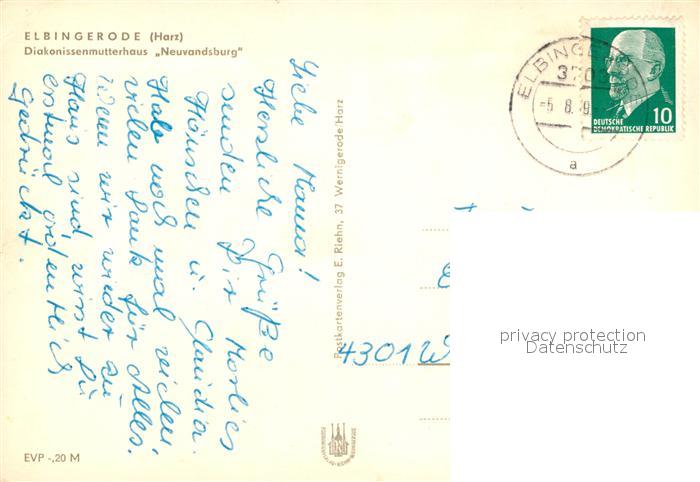 ELBINGERODE (Harz)
Diakonissenmutterhaus „Neuvandsburg"
Liebe Mama!
Herzliche Grüße
senden Dir
Hänschen u. Claudia.
Hab noch mal vielen,
vielen Dank für Alles.
Wenn wir wieder zu
Haus sind, wirst Du
erstmal ordentlich
gedrückt.
EVP -,20 M
Postkartenverlag E. Riehn, 37 Wernigerode-Harz
ELBINGE
3703
-5. 8.
a
10
DEUTSCHE
DEMOKRATISCHE REPUBLIK
4301 W
privacy protection
Datenschutz